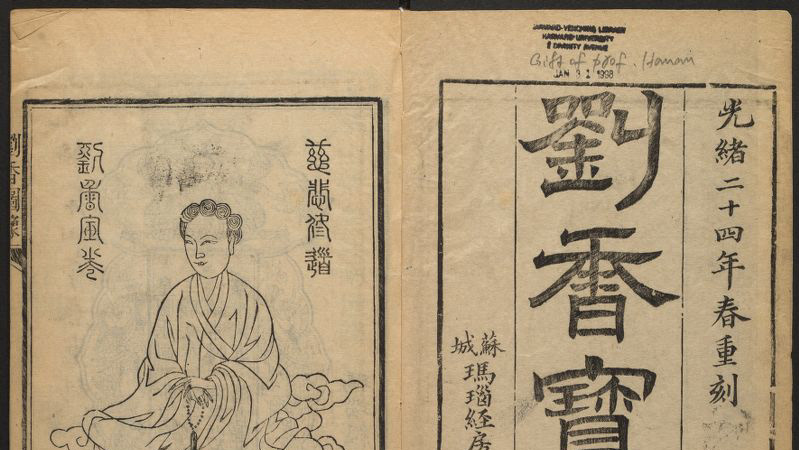 HARVARD-YENCHING LIBRARY
HARVARD UNIVERSITY
2 DIVINITY AVENUE
Gift of prof. Hanan
JAN 31 1998
光緒二十四年春重刻
劉香寶
蘇城
瑪瑙經房
慈悲修道
劉香寶卷
劉香圖像